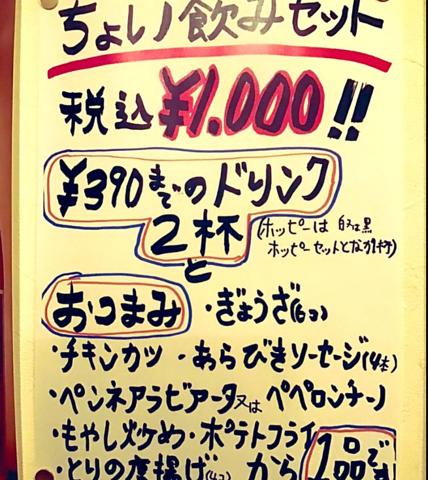 ちょい飲みセット
税込¥1.000!!
¥390までのドリンク
2杯
(ホッピーは 白又は黒
ホッピーセットとなか1杯)
と
おつまみ ・ぎょうざ(6コ)
・チキンカツ ・あらびきソーセージ(4本)
・ペンネアラビアータ又はペペロンチーノ
・もやし炒め・ポテトフライ
・とりの唐揚げ(4コ) から 1品です